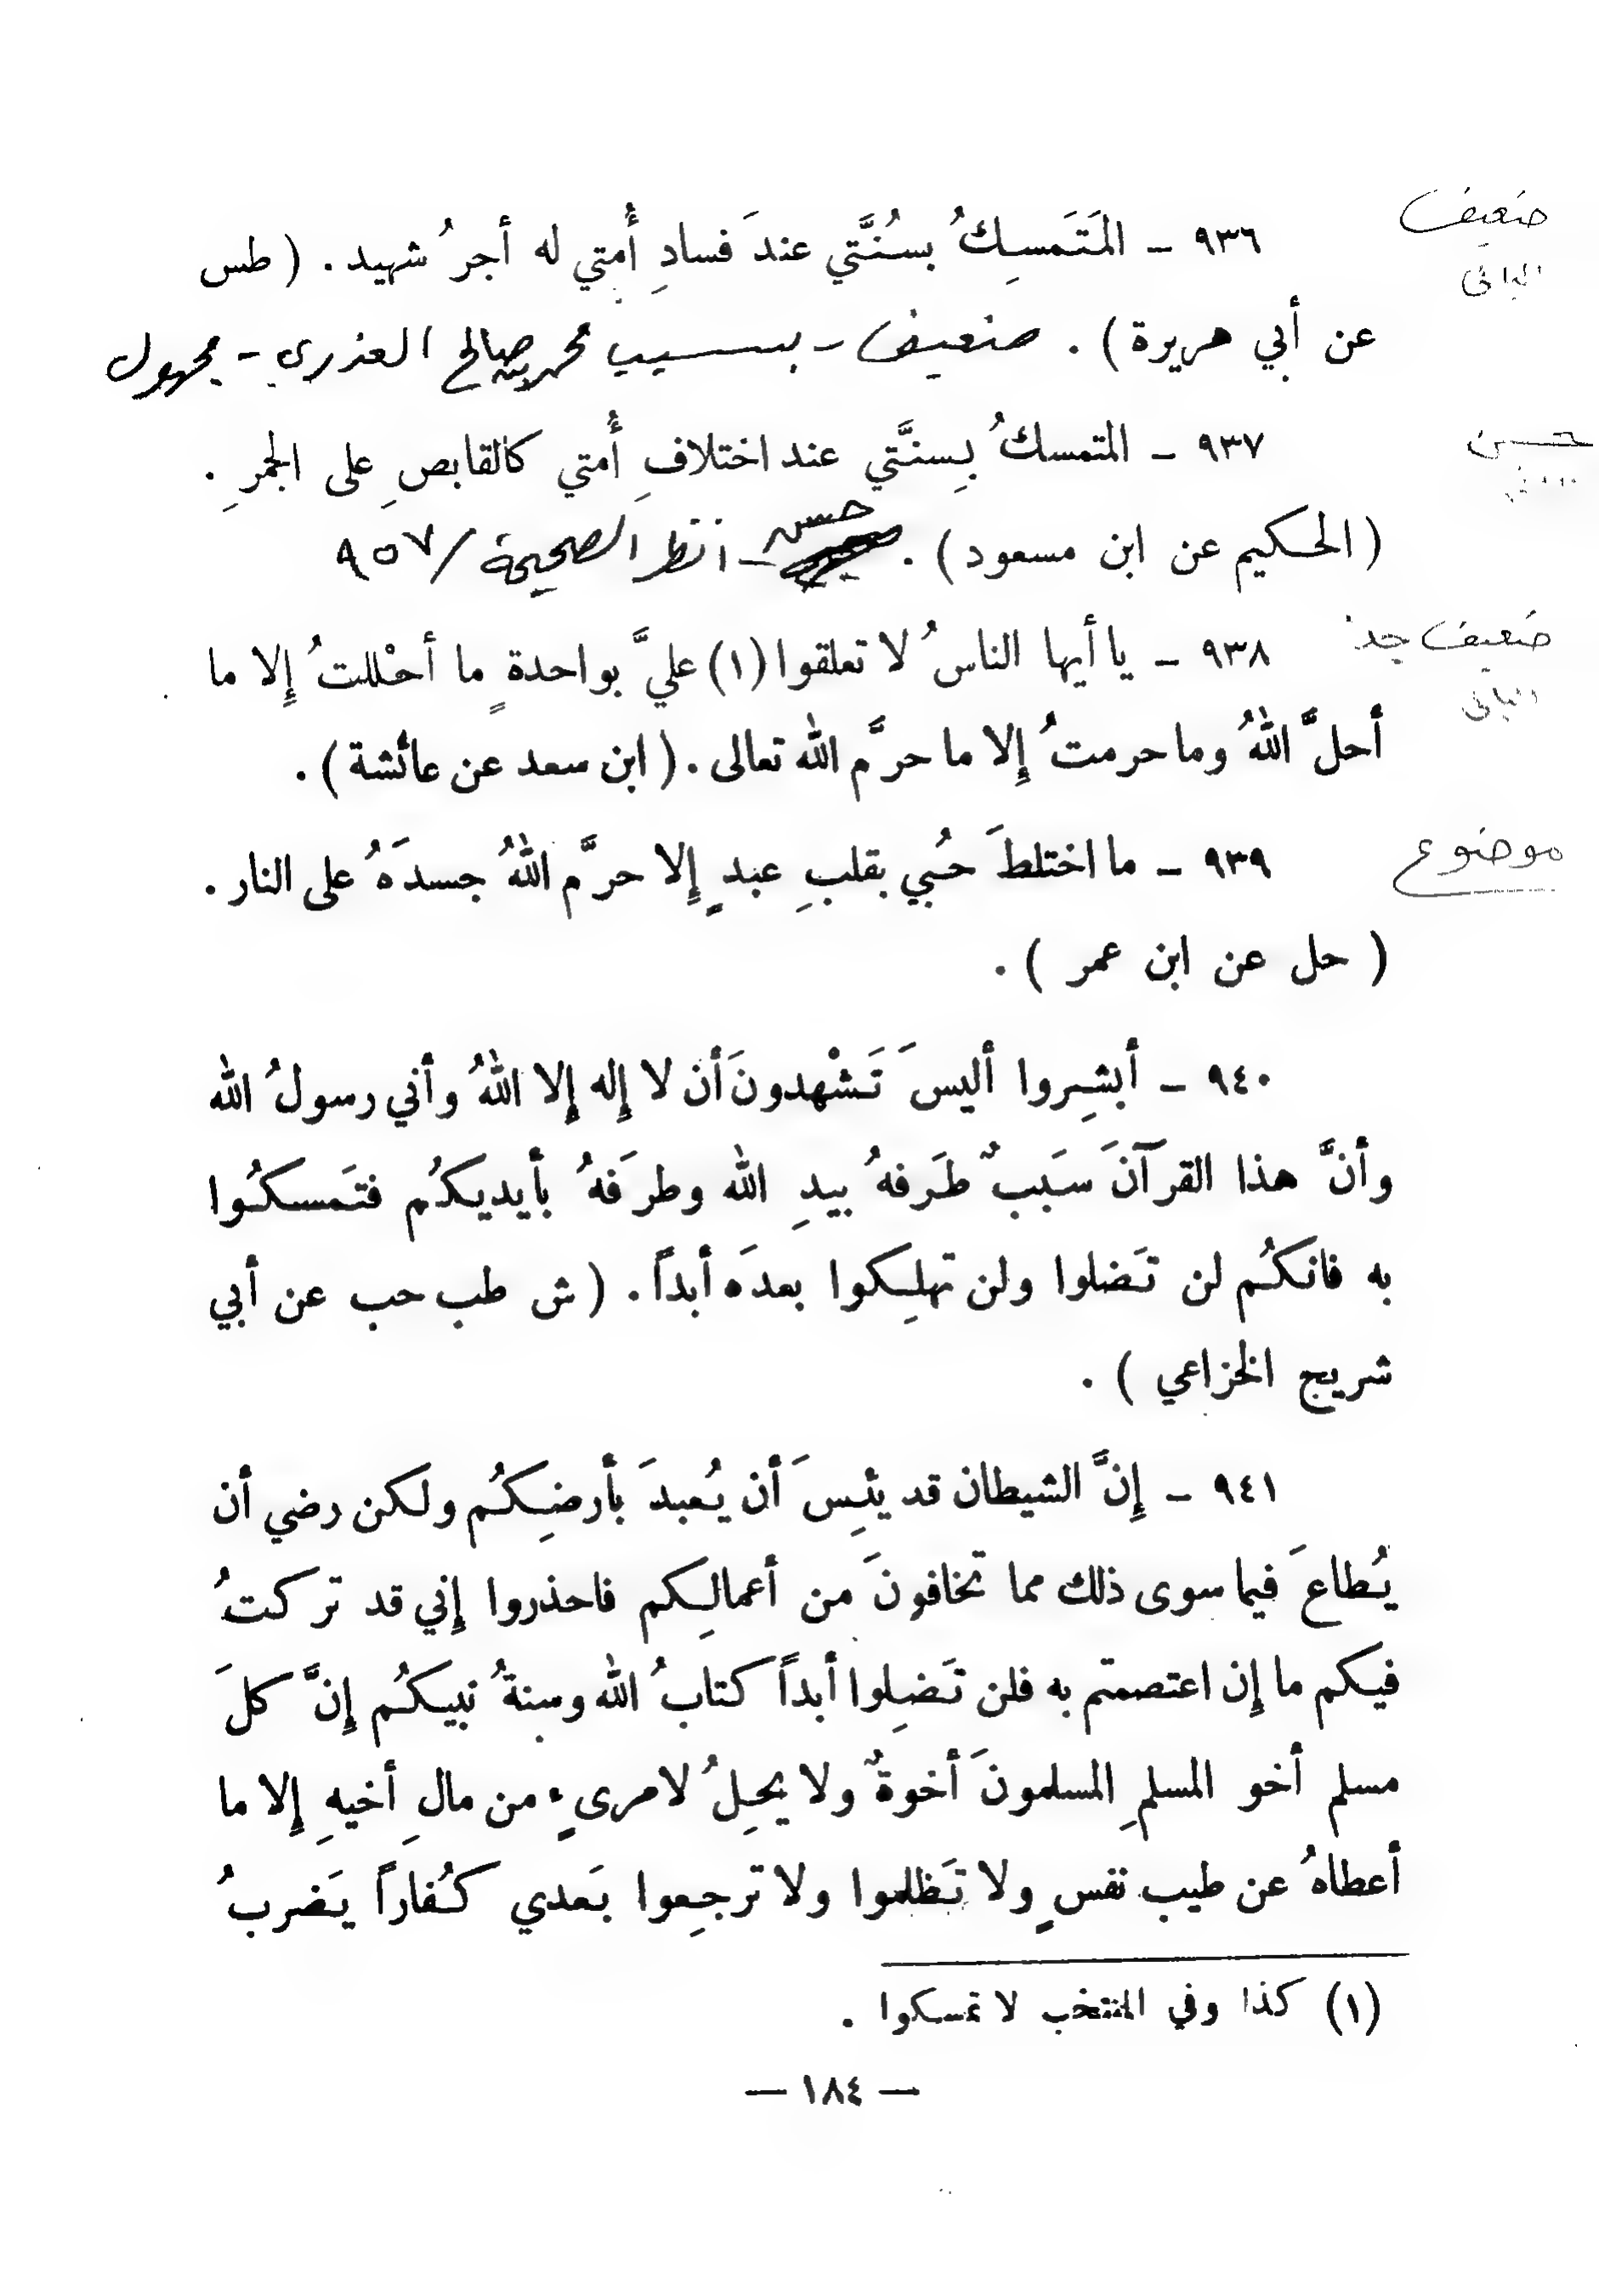 ضعيف
٩٣٦ ـ المَتَمسِكُ بسُنَّتي عندَ فسادِ أُمتي له أجرُ شهيد . ( طس
عن أبي هريرة ) . ضعيف - بسبب محمد بن صالح العذري - مجهول
حسن
٩٣٧ ـ المتمسكُ بِسنَّتي عند اختلافِ أُمتي كالقابصِ على الجمرِ .
( الحكيم عن ابن مسعود ) . حسن - انظر الصحيحة / ٩٥٧
ضعيف جداً
٩٣٨ ـ يا أيها الناسُ لا تعلقوا (١) عليَّ بواحدةٍ ما أحْللتُ إِلا ما
أحلَّ اللهُ وما حرمتُ إِلا ما حرَّم الله تعالى . ( ابن سعد عن عائشة ) .
موضوع
٩٣٩ ـ ما اختلطَ حُبي بقلبِ عبدٍ إِلا حرَّم اللهُ جسدَهُ على النار .
( حل عن ابن عمر ) .
٩٤٠ ـ أبشِروا أليسَ تَشْهدونَ أن لا إِله إِلا اللهُ وأني رسولُ الله
وأنَّ هذا القرآنَ سَببٌ طَرفهُ بيدِ الله وطرَفهُ بأيديكُم فتَمسكُوا
به فانكُم لن تَضلوا ولن تهلِكوا بعدَه أبداً . ( ش طب حب عن أبي
شريج الخزاعي ) .
٩٤١ ـ إِنَّ الشيطان قد يئِسَ أن يُعبدَ بأرضِكُم ولكن رضي أن
يُطاعَ فيما سوى ذلك مما تخافونَ من أعمالِكم فاحذروا إِني قد تركتُ
فيكم ما إِن اعتصمتم به فلن تَضِلوا أبداً كتابُ الله وسنةُ نبيكُم إِنَّ كلَ
مسلم أخو المسلمِ المسلمونَ أخوةٌ ولا يحِلُ لامرىءٍ من مالِ أخيهِ إِلا ما
أعطاهُ عن طيب نفسٍ ولا تَظلموا ولا ترجِعوا بَعدي كُفاراً يَضربُ
(١) كذا وفي المنتخب لا تمسكوا .
— ١٨٤ —